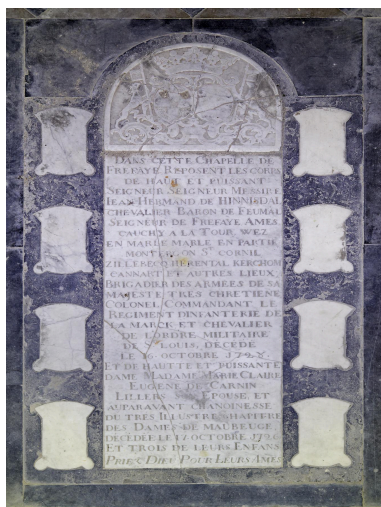 DANS CETTE CHAPELLE DE
FREFAYE REPOSENT LES CORPS
DE HAUT ET PUISSANT
SEIGNEUR SEIGNEUR MESSIRE
IEAN HERMAND DE HINNISDAL
CHEVALIER BARON DE FEUMAL
SEIGNEUR DE FREFAYE AMES
CAUCHY A LA TOUR WEZ
EN MARLE MARLE EN PARTIE
ON ST CORNIL
ZILLEBECQ HERENTAL KERCHOM
CANNART ET AUTRES LIEUX
BRIGADIER DES ARMEES DE SA
MAJESTE TRES CHRETIENE
COLONEL COMMANDANT LE
REGIMENT DINFANTERIE DE
LA MARCK ET CHEVALIER
DE LORDRE MILITAIRE
DE ST LOUIS, DECEDE
LE 16 OCTOBRE
ET DE HAUTE ET PUISSANTE
DAME MADAME MARIE CLAIRE
EUGENE DE CARNIN
LILLERS EPOUSE, ET
AUPARAVANT CHANOINESSE
DU TRES ILLUSTRE CHAPITRE
DES DAMES DE MAUBEUGE
DECEDEE LE 17 OCTOBRE 1726
ET TROIS DE LEURS ENFANS
PRIEZ DIEU POUR LEURS AMES